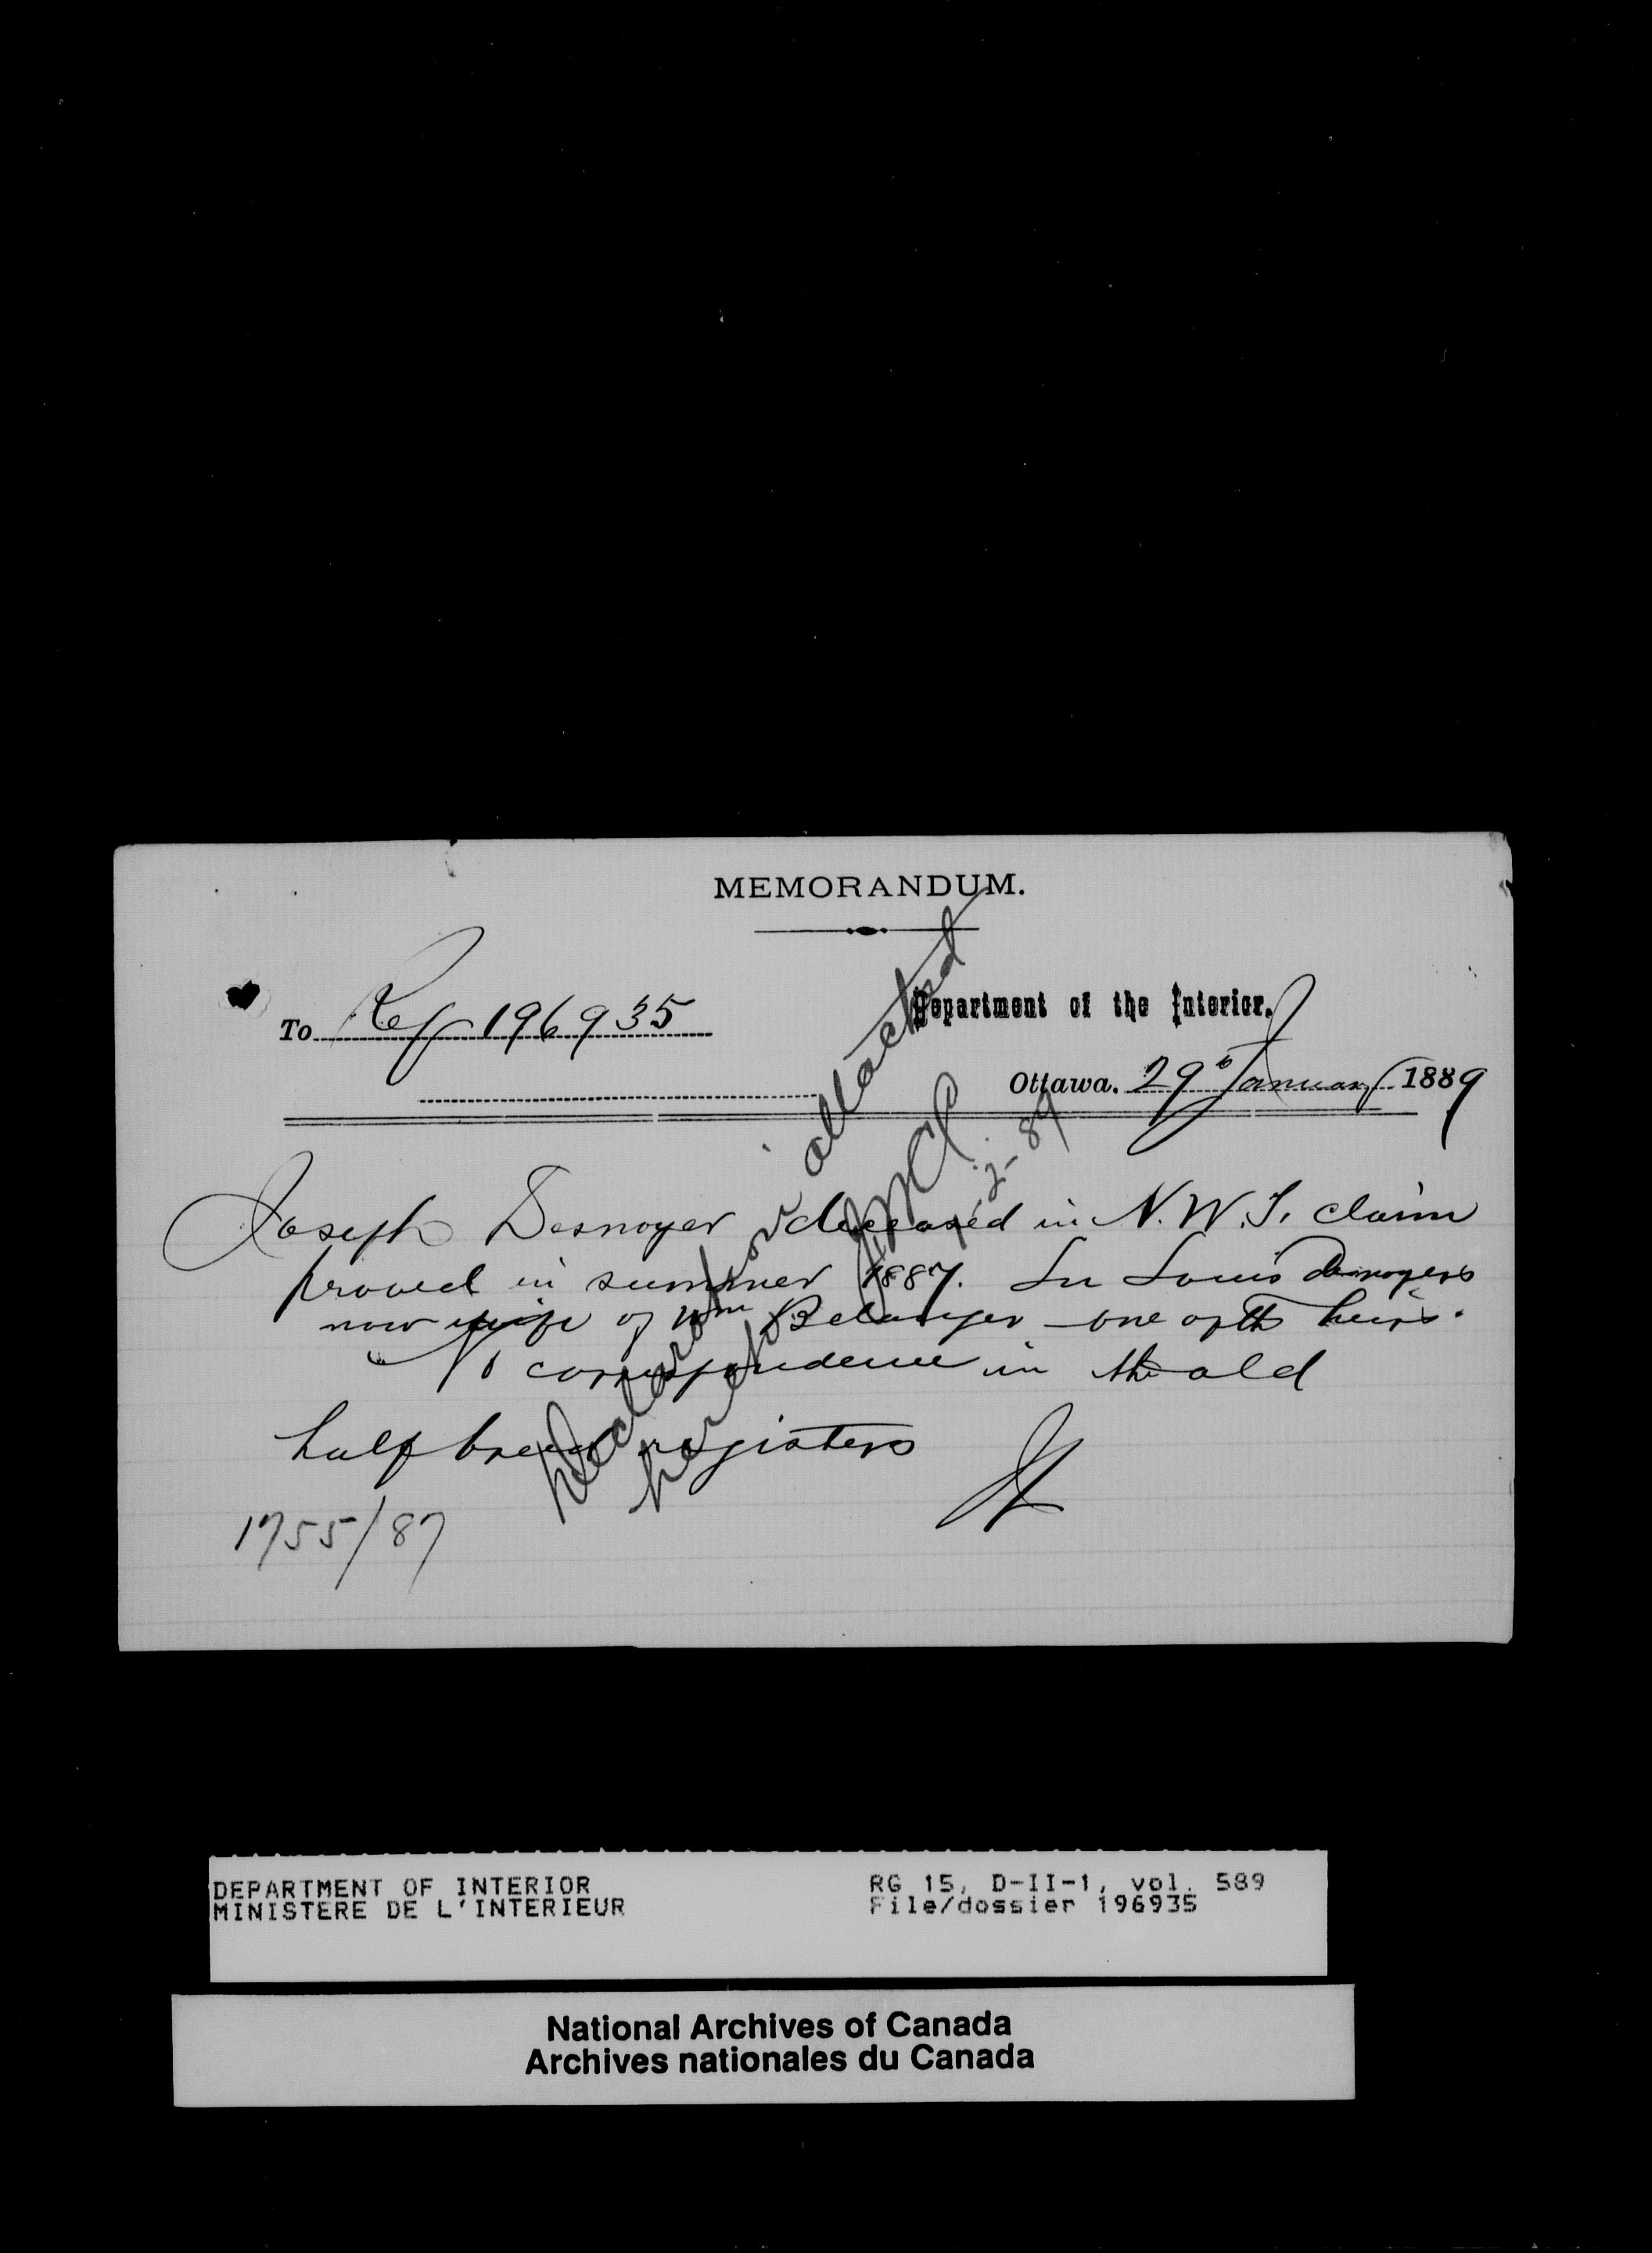 MEMORANDUM.
To Ref 196935
Department of the Interior.
Ottawa. 29th January 1889
Joseph Desnoyer deceased in N.W.T. claim
proved in summer 1887. Louis Desnoyers
now wife of Wm Belanger one of the heirs.
No correspondence in the old
half breed registers
1755/87
Declaration attached
hereto
2-89
DEPARTMENT OF INTERIOR
MINISTERE DE L'INTERIEUR
RG 15, D-II-1, vol. 589
File/dossier 196935
National Archives of Canada
Archives nationales du Canada